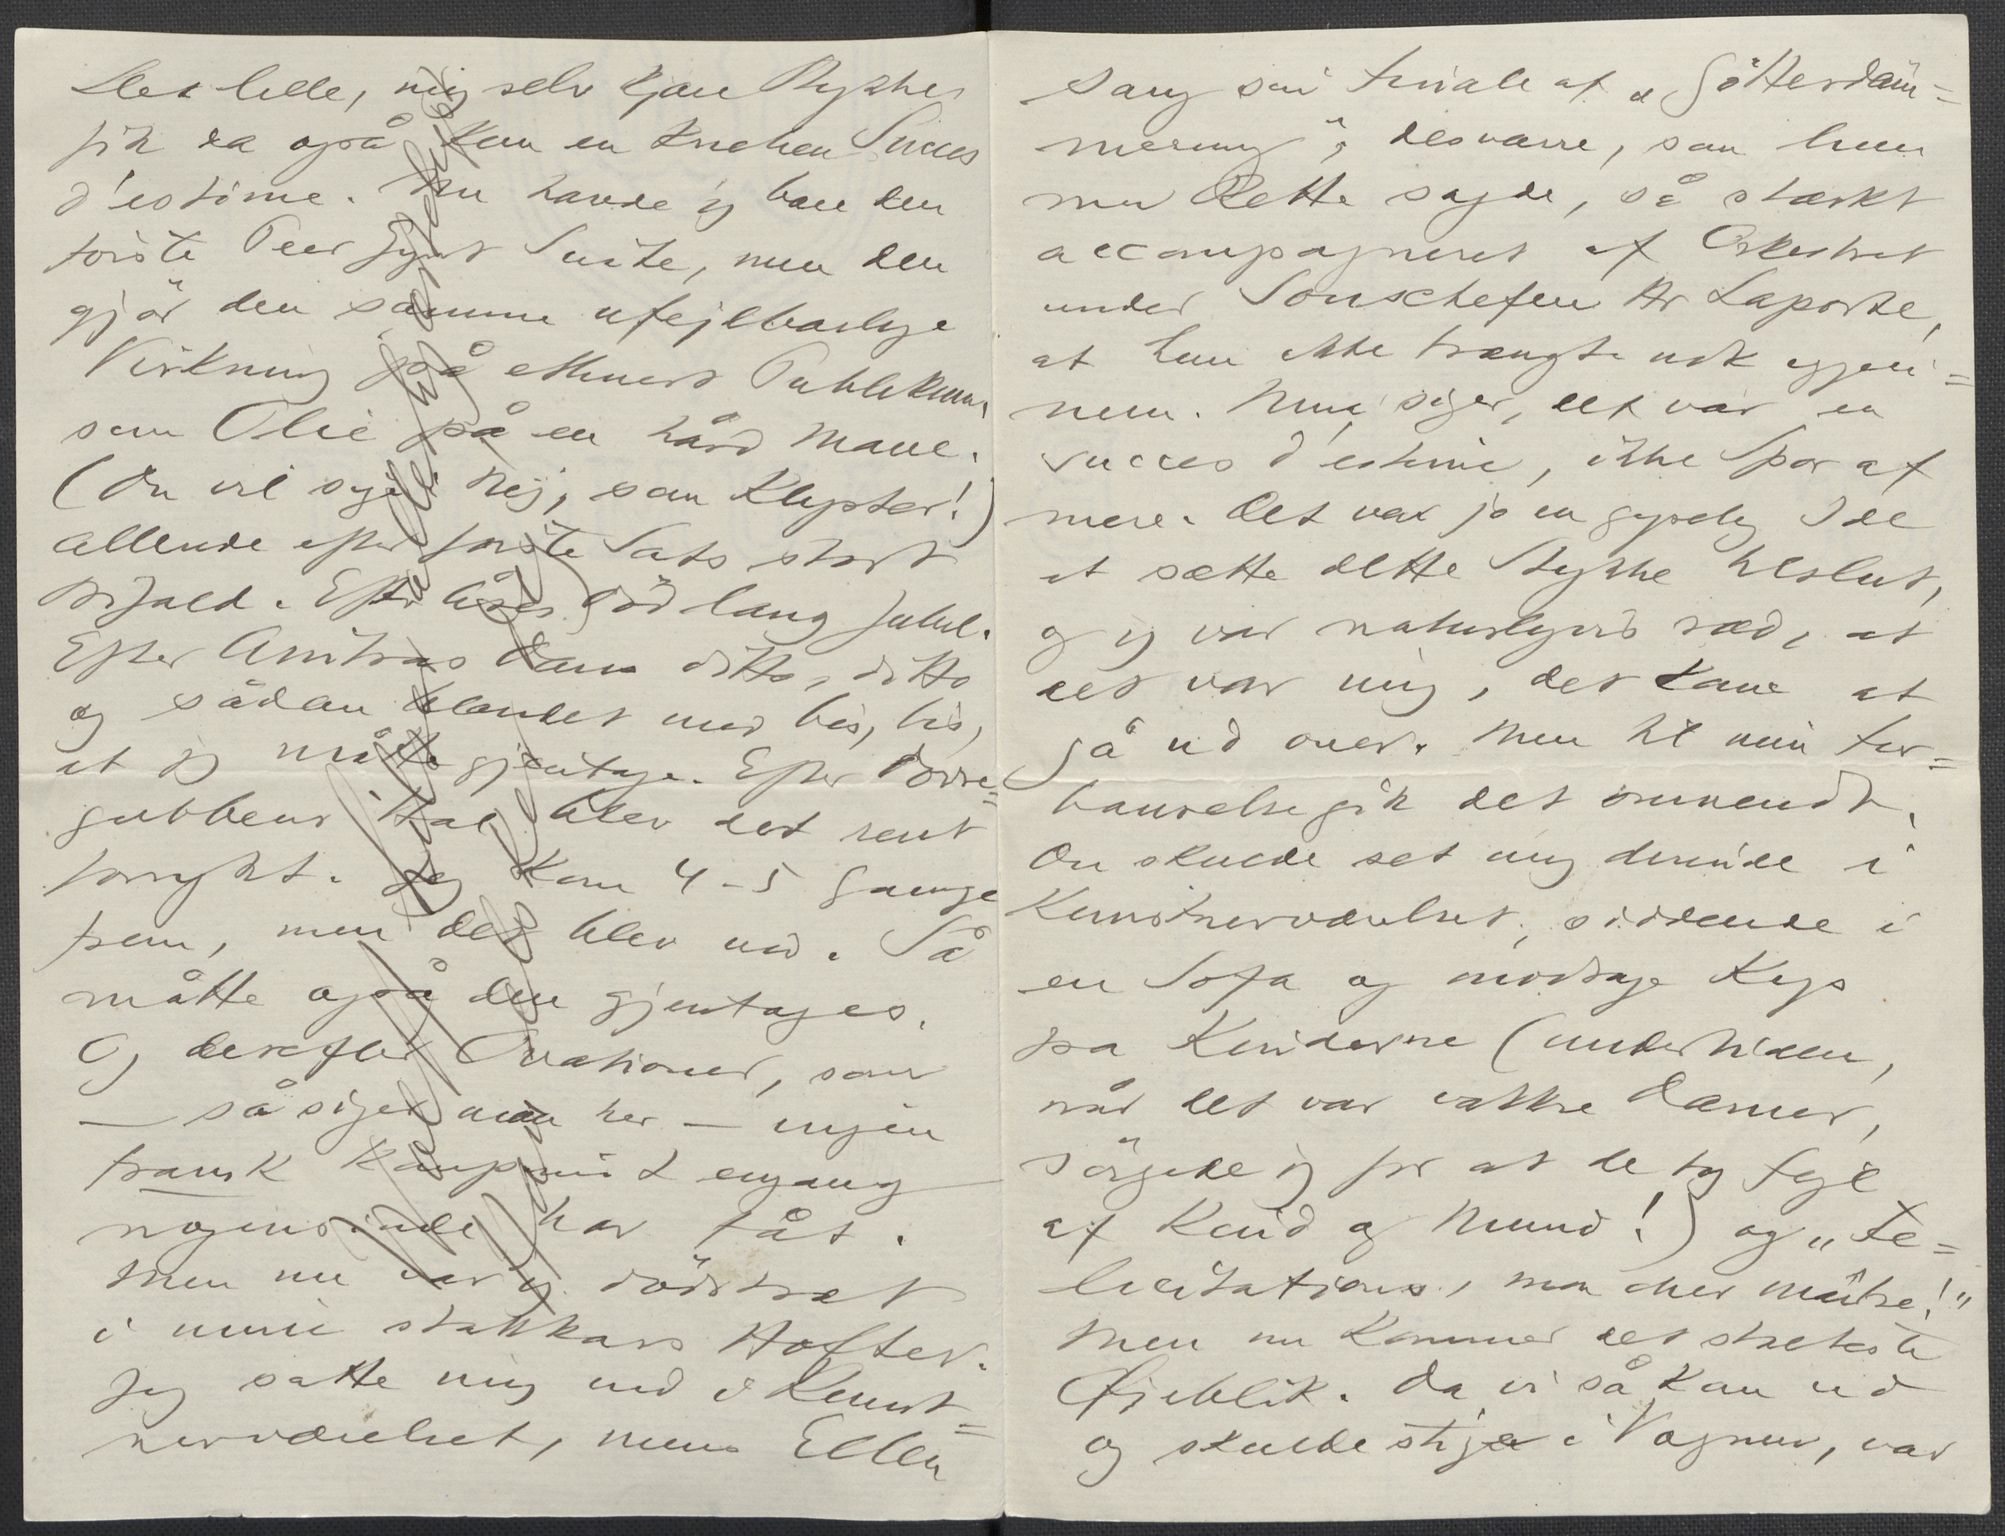 Det lille, mig selv kjære Stykke
fik da også kun en kneben Succes
d'estime. Nu havde jeg bare den
første Peer Gynt Suite, men den
gjör den samme ufejlbarlige
Virkning på ethvert Publikum,
som Olie på en hård Mave.
(Du vil sige: Nej, som Klyster!)
Allerede efter förste Sats stort
Bifald. Efter Åses Död lang Jubel.
Efter Anitras Dans ditto, ditto
og sådan blandet med bis, bis,
at jeg måtte gjentage. Efter Dovre=
gubbens Hal blev det rent
forrykt. Jeg kom 4-5 Gange
frem, men det blev ved. Så
måtte også den gjentages.
Og derefter Ovationer, som
– så siger man her – ingen
fransk Komponist engang
nogensinde har fåt.
Men nu var jeg dödstræt
i mine stakkars Hofter.
Jeg satte mig ned i Kunst=
nerværelset, mens Ellen
sang sin Finale af „Götterdäm=
merung", desværre, som hun
med Rette sagde, så stærkt
accompagneret af Orkestret
under Souschefen Hr Laporte,
at hun ikke trængte nok igjen=
nem. Nina siger, det var en
succes d'estime, ikke Spor af
mere. Det var jo en gyselig Ide
at sætte dette Stykke tilslut,
og jeg var naturligvis ræd, at
det var mig, det kom at
gå ud over. Men til min For=
bauselse gik det omvendt.
Du skulde set mig derinde i
Kunstnerværelset, siddende i
en Sofa og modtage Kys
på Kinderne (undertiden,
når det var vakkre Damer,
sörgede jeg for at de tog Fejl
af Kind og Mund!) og „Fe=
licitations, mon cher maître!"
Men nu kommer det stolteste
Øjeblik. Da vi så kom ud
og skulde stige i Vognen, var